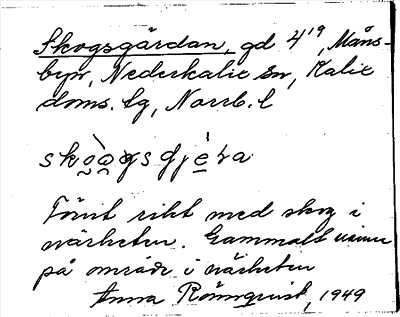 Skogsgärdan, gd 4¹⁹, Måns-
byn, Nederkalix sn, Kalix
doms. lg, Norrb. l
skoògsgjè̱ra
Förut rikt med skog i
närheten. Gammalt namn
på område i närheten
Anna Rönnqvist, 1949